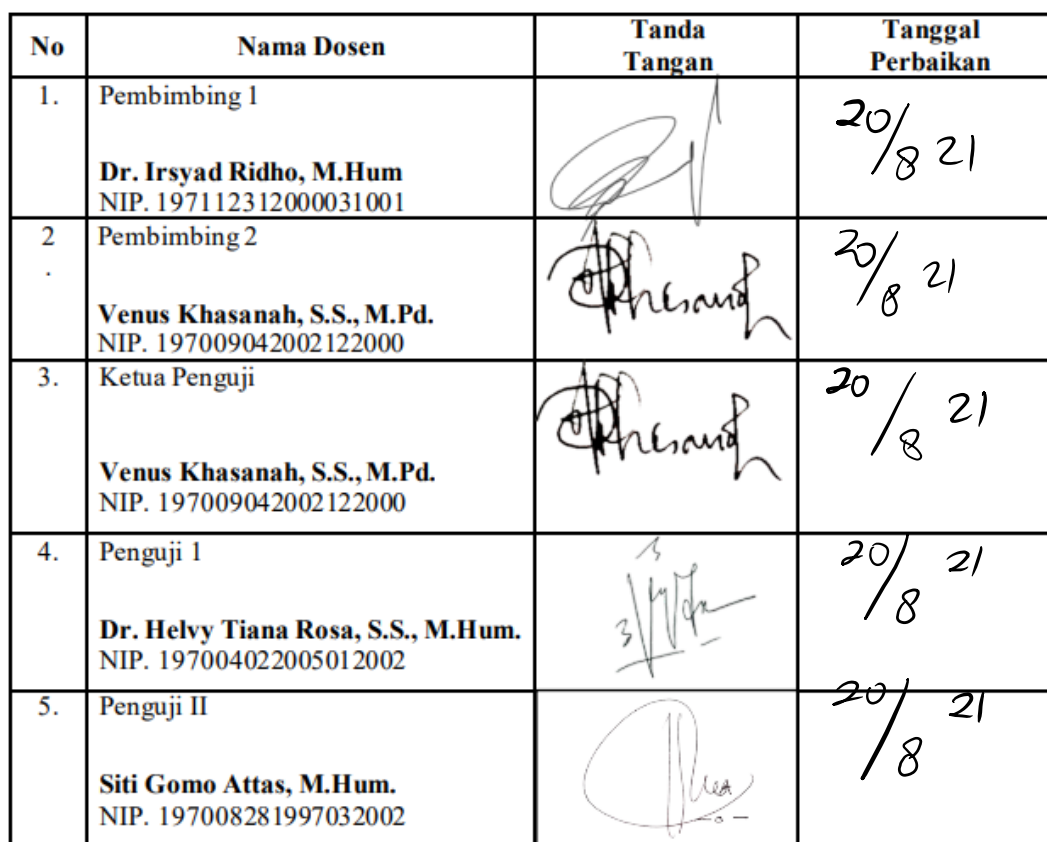 No Nama Dosen Tanda Tangan Tanggal Perbaikan
1. Pembimbing 1
20/8 21
Dr. Irsyad Ridho, M.Hum
NIP. 197112312000031001
2 Pembimbing 2
.
20/8 21
Venus Khasanah, S.S., M.Pd.
NIP. 197009042002122000
3. Ketua Penguji
20/8 21
Venus Khasanah, S.S., M.Pd.
NIP. 197009042002122000
4. Penguji 1
20/8 21
Dr. Helvy Tiana Rosa, S.S., M.Hum.
NIP. 197004022005012002
5. Penguji II
20/8 21
Siti Gomo Attas, M.Hum.
NIP. 197008281997032002